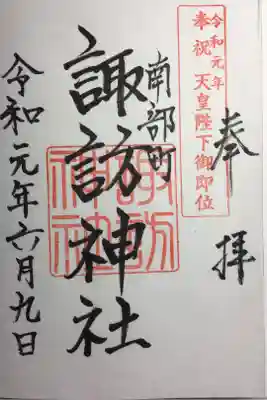 奉拝
令和元年
奉祝 天皇陛下御即位
南部町
諏訪神社
諏訪神社
令和元年六月九日